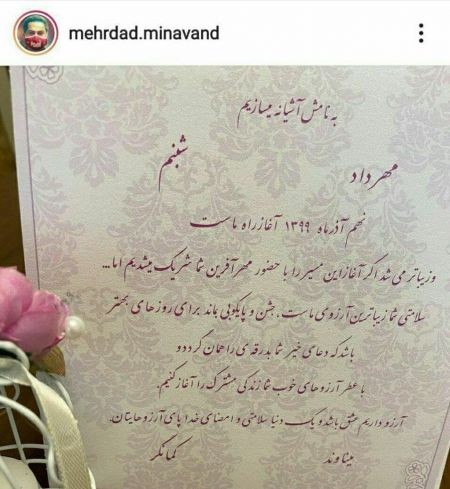 mehrdad.minavand
به نامش آشیانه میسازیم
مهرداد شبنم
نهم آذر ماه ۱۳۹۹ آغاز راه ماست
و زیباتر می شد اگر آغاز این مسیر را با حضور مهرآفرین شما شریک میشدیم اما...
سلامتی شما زیباترین آرزوی ماست، جشن و پایکوبی بماند برای روزهای بهتر
باشد که دعای خیر شما بدرقه ی راهمان گردد و
با عطر آرزوهای خوب شما زندگی مشترک را آغاز کنیم.
آرزو داریم عشق باشد و یک دنیا سلامتی و امضای خدا پای آرزوهایتان.
میناوند کمانگر